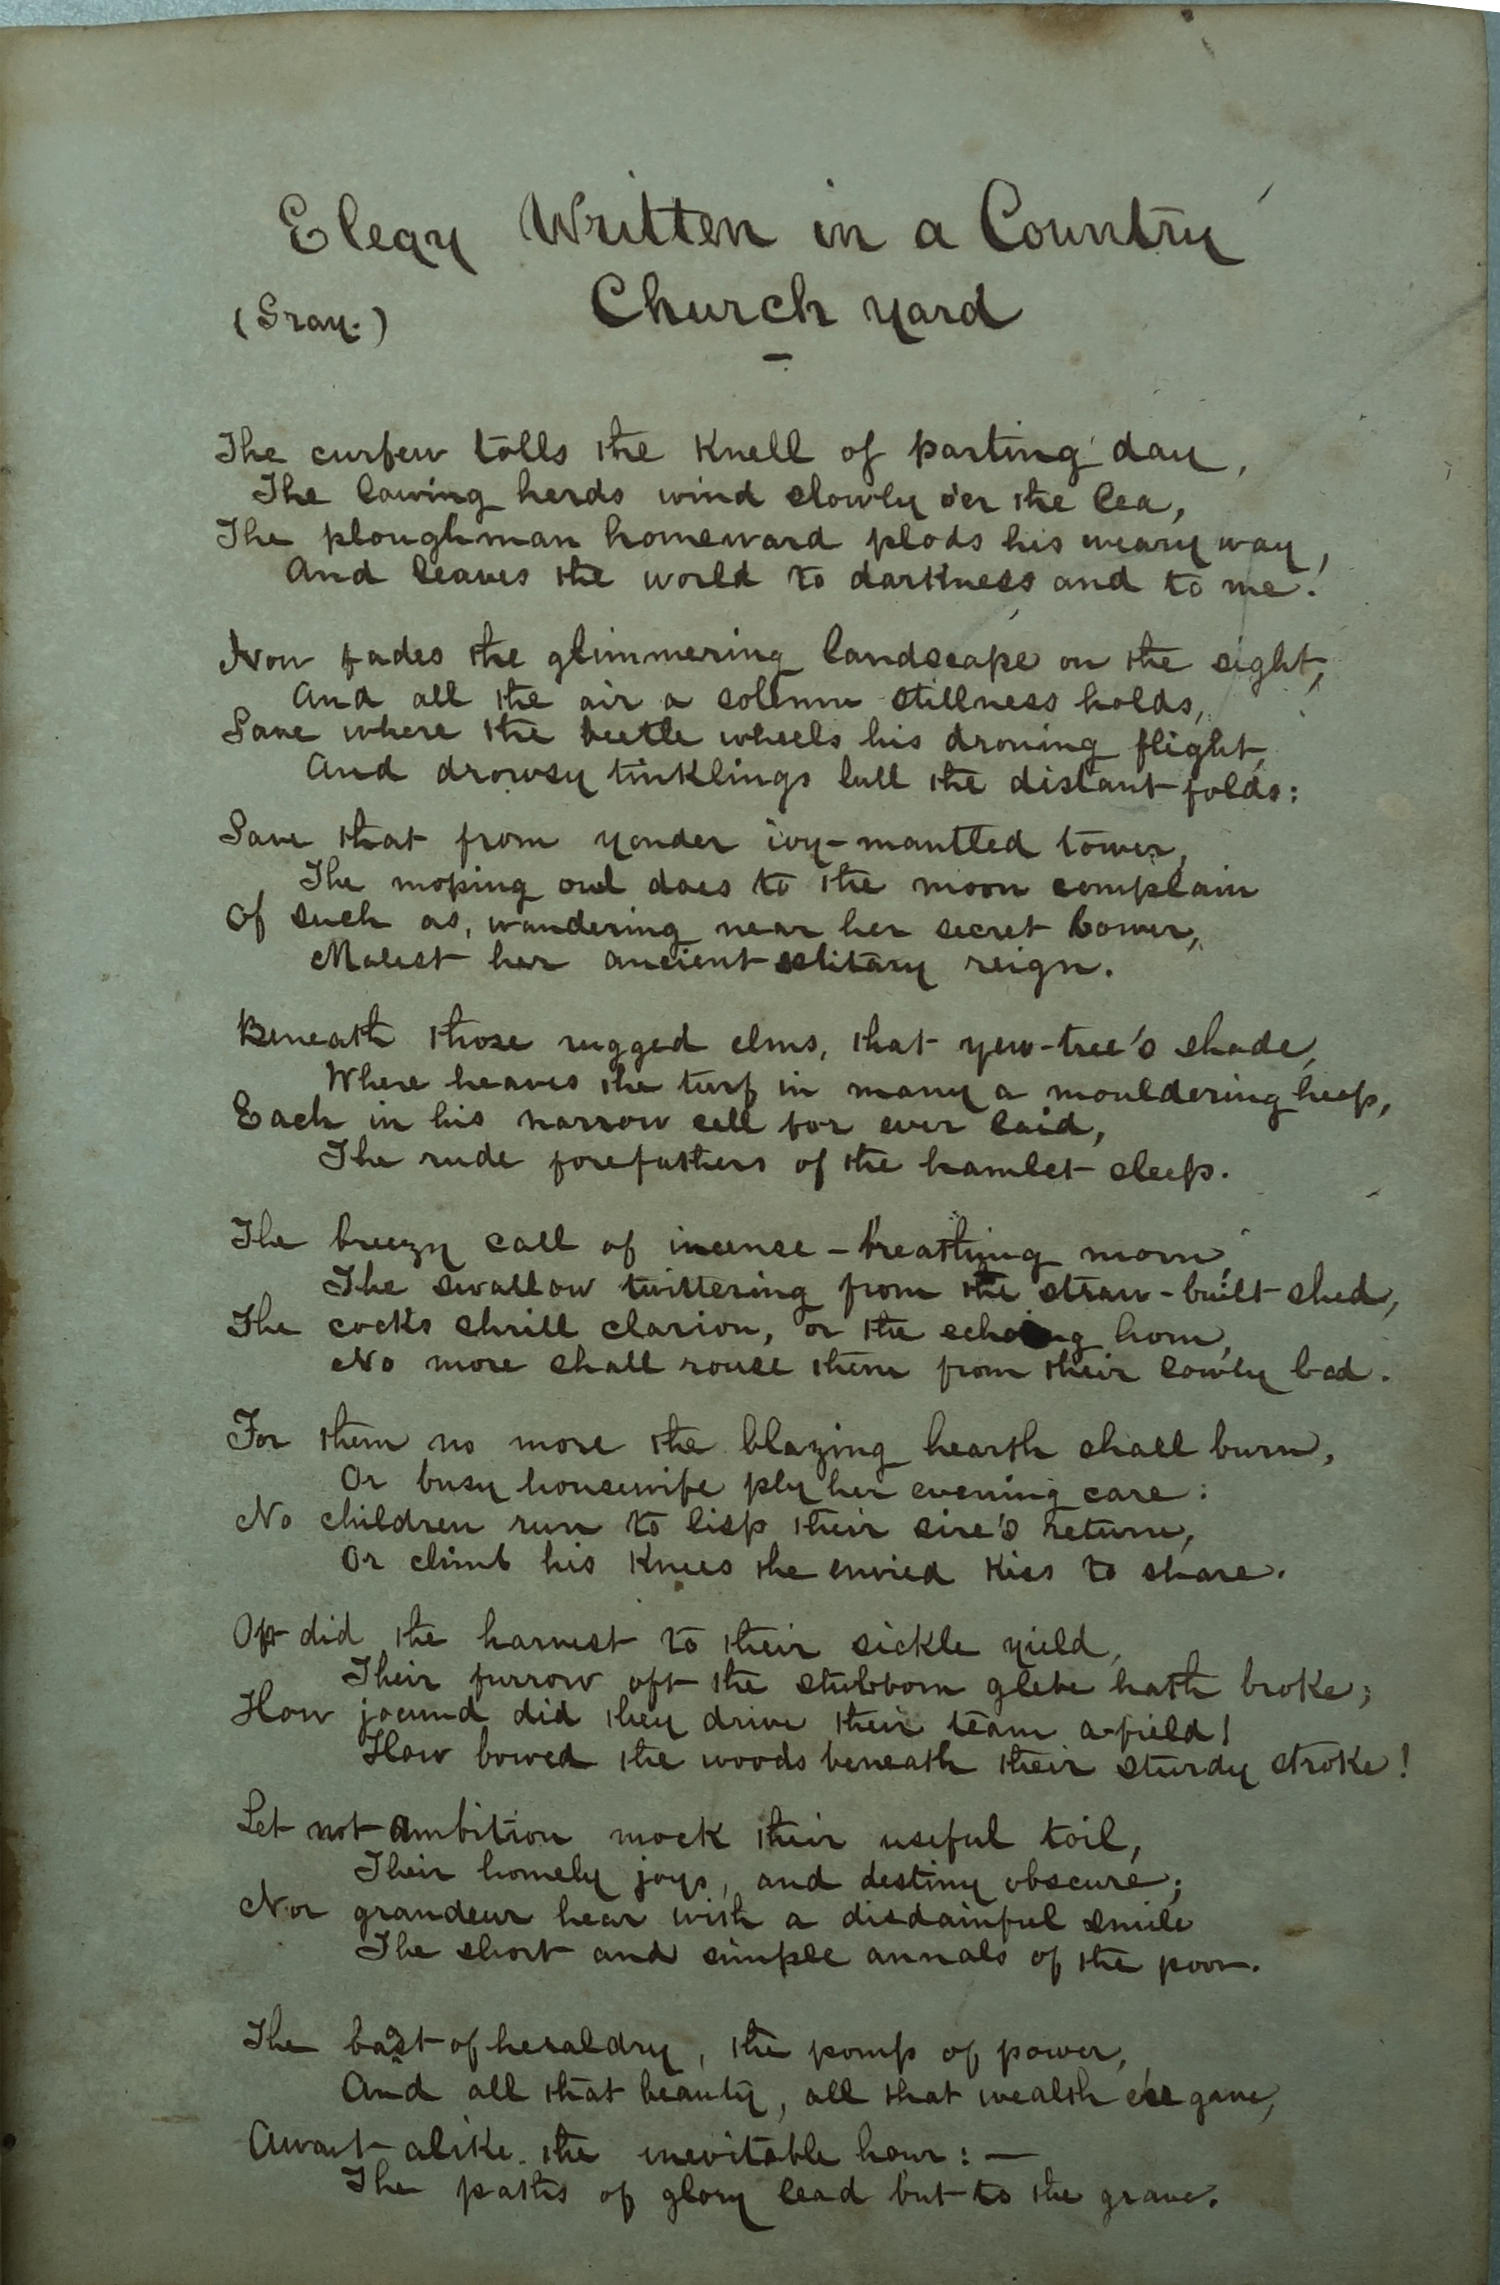 Elegy Written in a Country
Church yard
(Gray.)
The curfew tolls the knell of parting day,
The lowing herds wind slowly o'er the lea,
The ploughman homeward plods his weary way,
And leaves the world to darkness and to me.
Now fades the glimmering landscape on the sight,
And all the air a solemn stillness holds,
Save where the beetle wheels his droning flight,
And drowsy tinklings lull the distant folds:
Save that from yonder ivy-mantled tower,
The moping owl does to the moon complain
Of such as, wandering near her secret bower,
Molest her ancient solitary reign.
Beneath those rugged elms, that yew-tree's shade,
Where heaves the turf in many a mouldering heap,
Each in his narrow cell for ever laid,
The rude forefathers of the hamlet sleep.
The breezy call of incense-breathing morn,
The swallow twittering from the straw-built shed,
The cock's shrill clarion, or the echoing horn,
No more shall rouse them from their lowly bed.
For them no more the blazing hearth shall burn,
Or busy housewife ply her evening care:
No children run to lisp their sire's return,
Or climb his knees the envied kiss to share.
Oft did the harvest to their sickle yield,
Their furrow oft the stubborn glebe hath broke;
How jocund did they drive their team a-field!
How bowed the woods beneath their sturdy stroke!
Let not Ambition mock their useful toil,
Their homely joys, and destiny obscure;
Nor grandeur hear with a disdainful smile
The short and simple annals of the poor.
The boast of heraldry, the pomp of power,
And all that beauty, all that wealth e'er gave,
Await alike the inevitable hour:—
The paths of glory lead but to the grave.